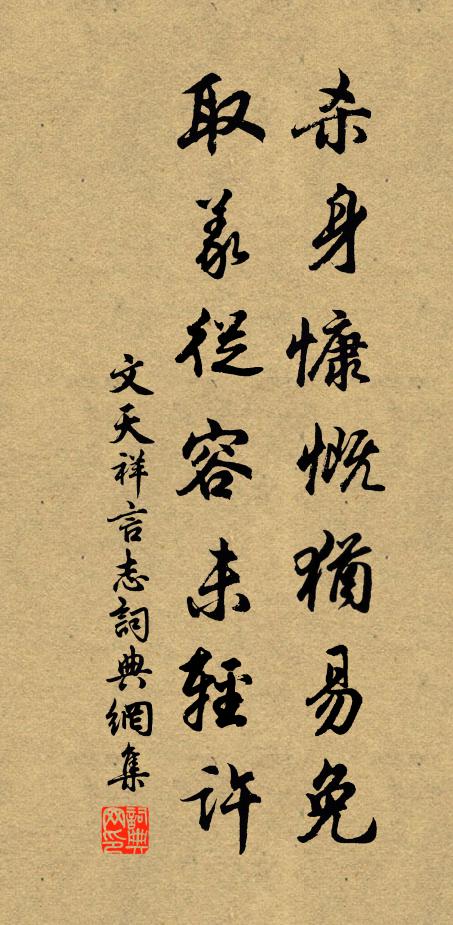 杀身慷慨犹易免
取義從容未輕許
文天祥言志詞典網集
詞典
网印